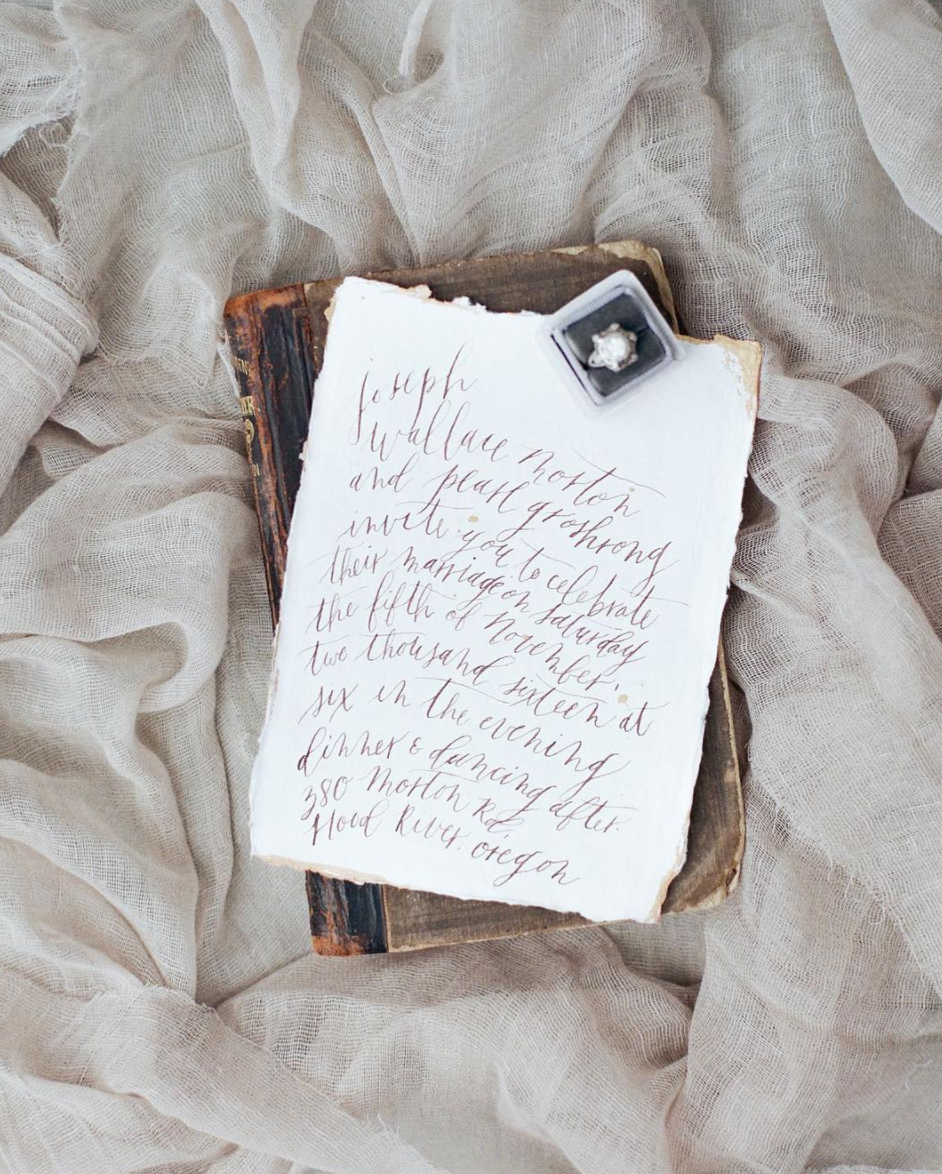 Joseph
Wallace Moston
and pearl groshrong
invite you to celebrate
their marriage on Saturday
the fifth of November.
two thousand sixteen at
six in the evening
dinner & dancing after.
380 Moston Rd.
Hood River, oregon